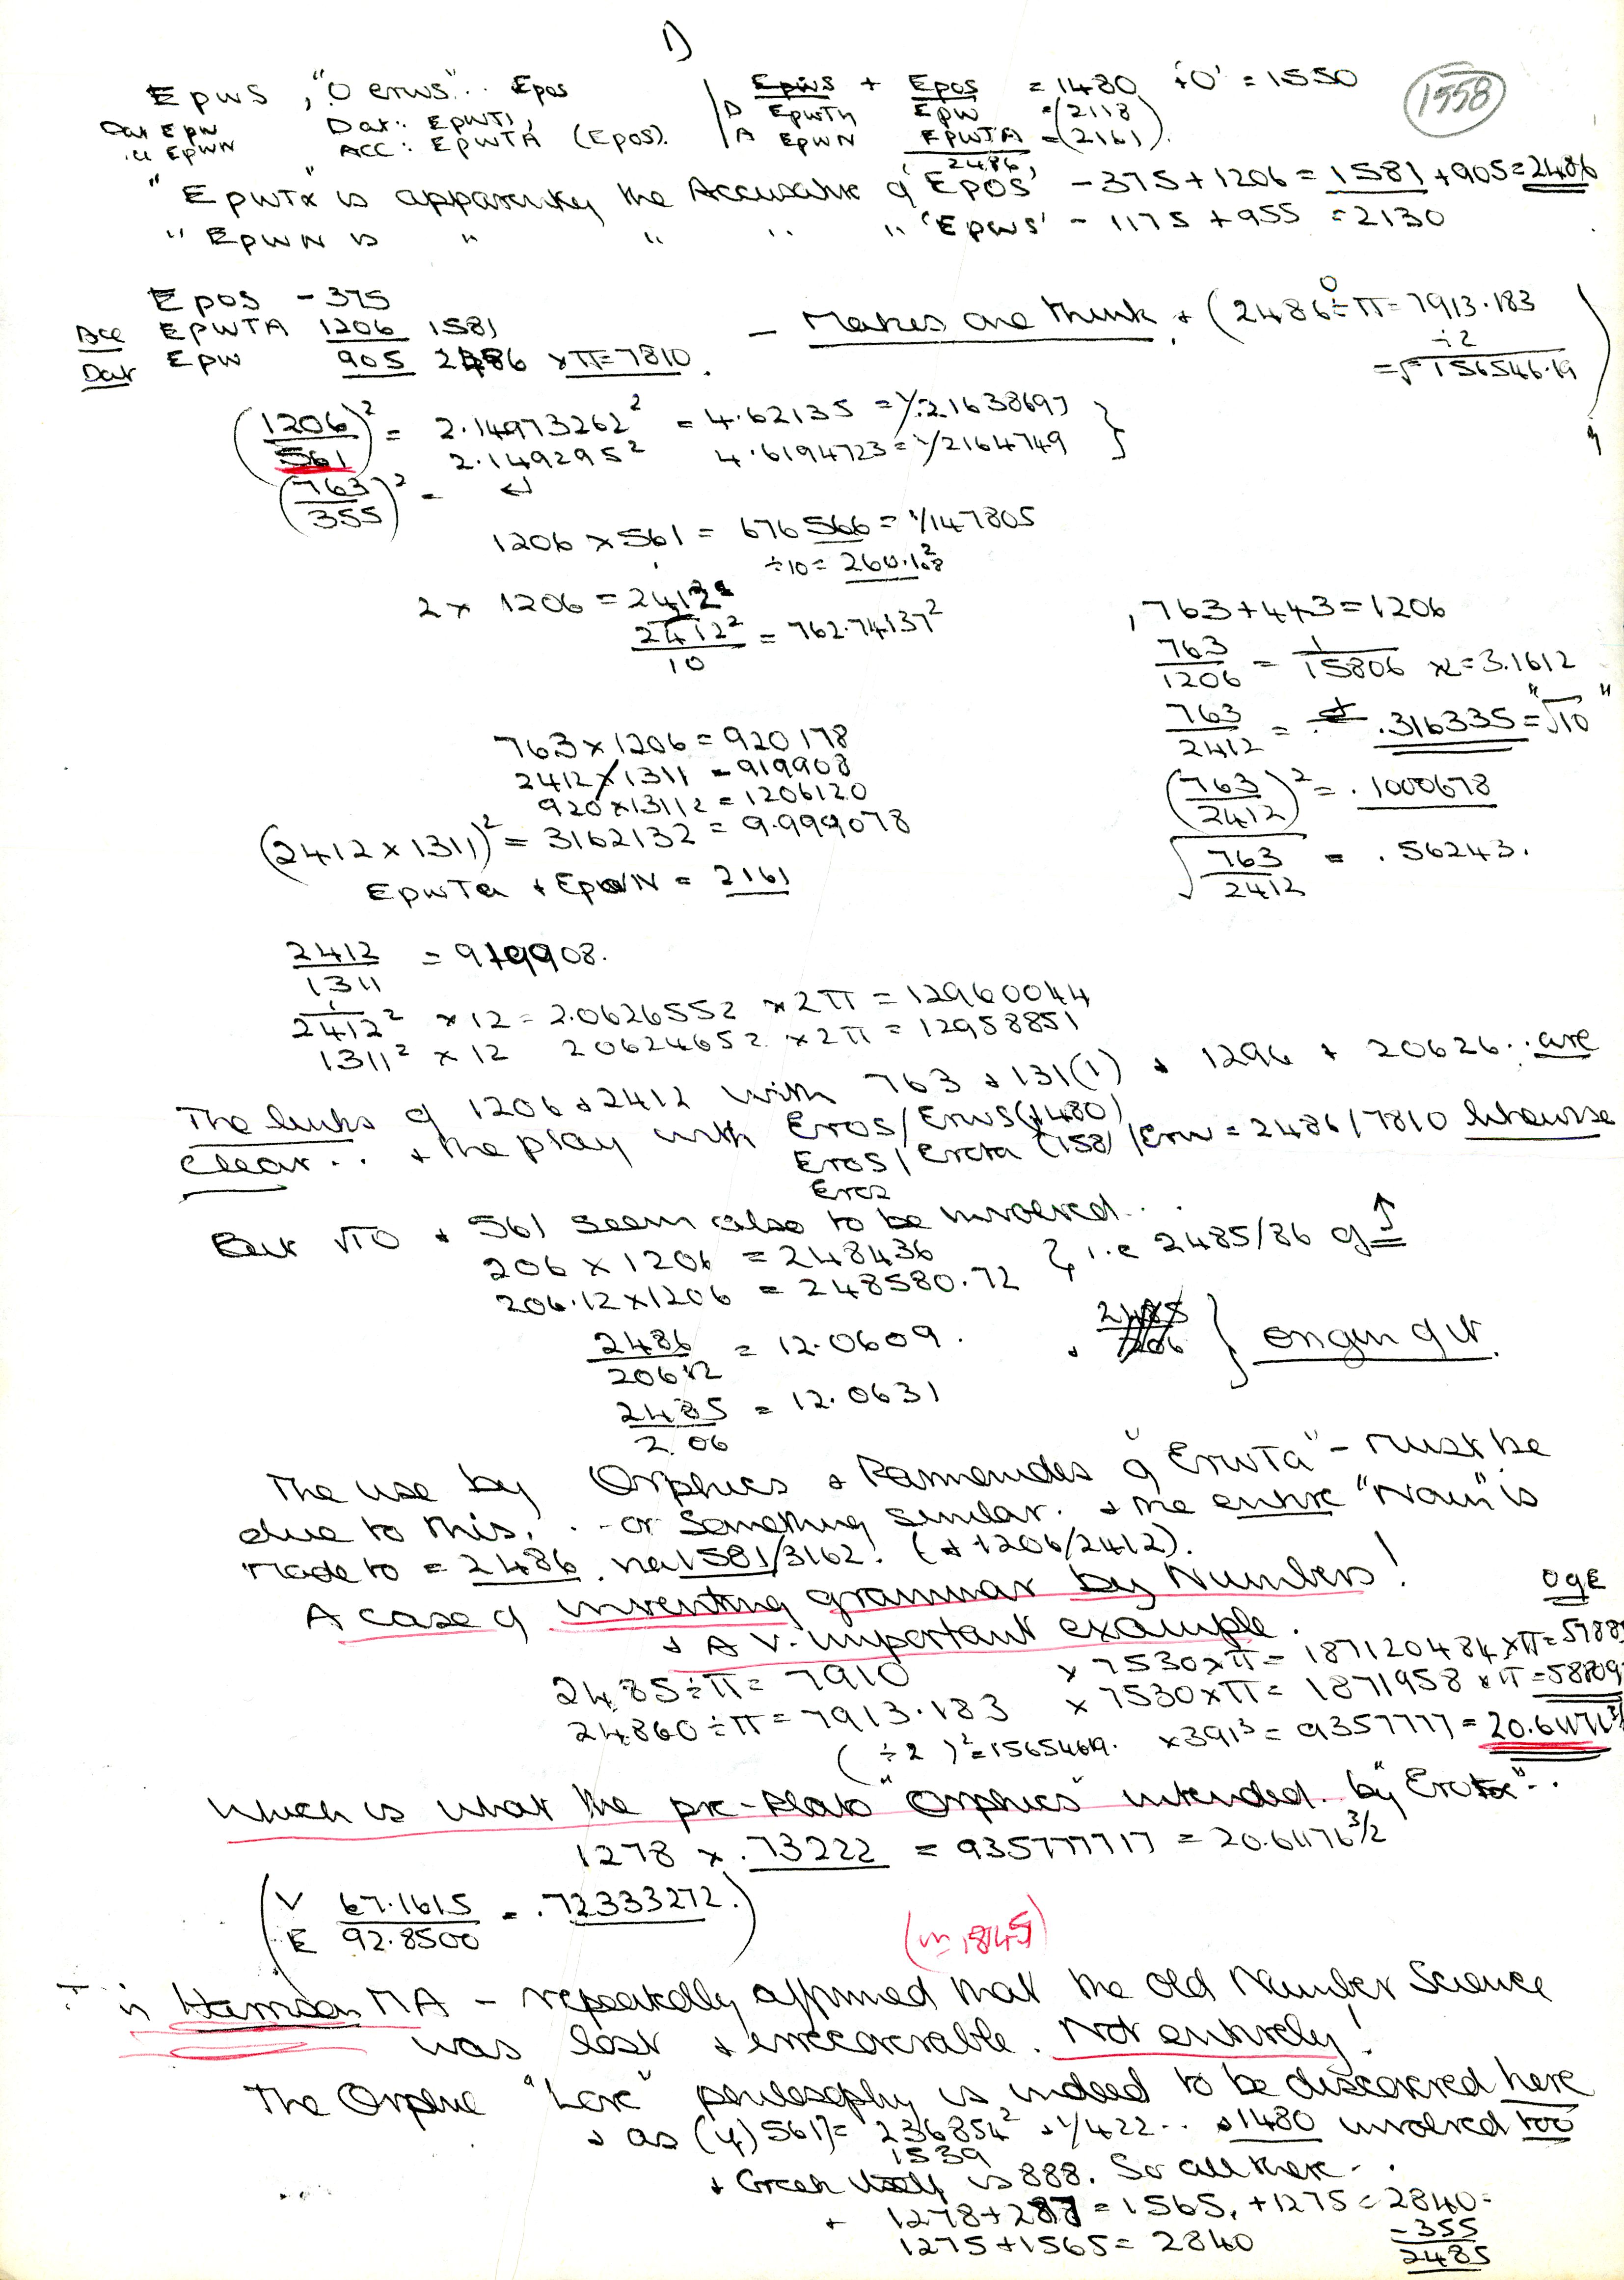 1)
1558
Epws , "O erws".. Epos
Dat Epw Dat: EpwTi,
Epwn Acc: EpwTA (Epos).
Epws + Epos = 1480 +'O' = 1550
D EpwTi Epw =(2118)
A Epwn EpwTA =(2161).
2486
"EpwTa" is apparently the Accusative of 'EPOS' - 375+1206 = 1581 +905=2486
" EpwN is " " " " 'Epws' - 1175 +955 = 2130
Epos - 375
Acc EpwTA 1206 1581
Dat Epw 905 2486 xπ=7810.
- Makes one think + (24860÷π=7913.183
÷2
=√15654619
(1206/561)² = 2.14973262² = 4.62135 = 1/.21638697 }
2.149295² 4.6194723 = 1/2164749
(763/355)² =
1206 x 561 = 676566 = 1/147805
÷10 = 260.1²
2 x 1206 = 2412
2412²/10 = 762.74137²
, 763+443=1206
763/1206 = 1/15806 x2=3.1612
763/2412 = .316335 = "√10"
(763/2412)² = .1000678
√763/2412 = .56243.
763 x 1206 = 920178
2412 x 1311 = 919908
920 x 1311 = 1206120
(2412 x 1311)² = 3162132 = 9.999078
EpwTa + EpwN = 2161
2412/1311 = 919908.
1/2412² x 12 = 2.0626552 x 2π = 12960044
1311² x 12 20624652 x 2π = 12958851
The links of 1206 & 2412 with 763 & 131(1) + 1296 + 20626.. are
clear.. + the play with Eros/Erws (1480)
Eros/Erota (1581) /Erw = 2486/7810 likewise
Eros
But √10 + 561 seem also to be involved...
206 x 1206 = 248436
206.12 x 1206 = 248580.72 } i.e 2485/86 of
2486/20612 = 12.0609. + 2485/206 } origin of it.
2485/2.06 = 12.0631
The use by Orphics & Parmenides of "ErwTa" - must be
due to this. .. or something similar. + the entire "Noun" is
made to = 2486. via 1581/3162! (+ 1206/2412).
A case of inventing grammar by Numbers!
+ A v. important example.
OgE
2485÷π= 7910 x 7530 x π = 187120484 x π = 5788
24860÷π = 7913.183 x 7530 x π = 1871958 x π = 58809
( ÷2 )² = 15654619. x 391³ = 9357777 = 20.61176
Which is what the pre-Plato "Orphics" intended by "Erota"..
1278 x .73222 = 935777717 = 20.61176 3/2
(V 67.1615
E 92.8500 = .72333272.)
(in 1845)
T in Harrison MA - repeatedly affirmed that the Old Number Science
was lost & irrecoverable. Not entirely!
The Orphic "Love" philosophy is indeed to be discovered here
+ as (4) 561)= 236854² + 1/422 .. + 1480 involved too
1539
+ Greek itself is 888. So all there..
+ 1278+287 = 1565, +1275 = 2840=
1275+1565= 2840 -355
2485